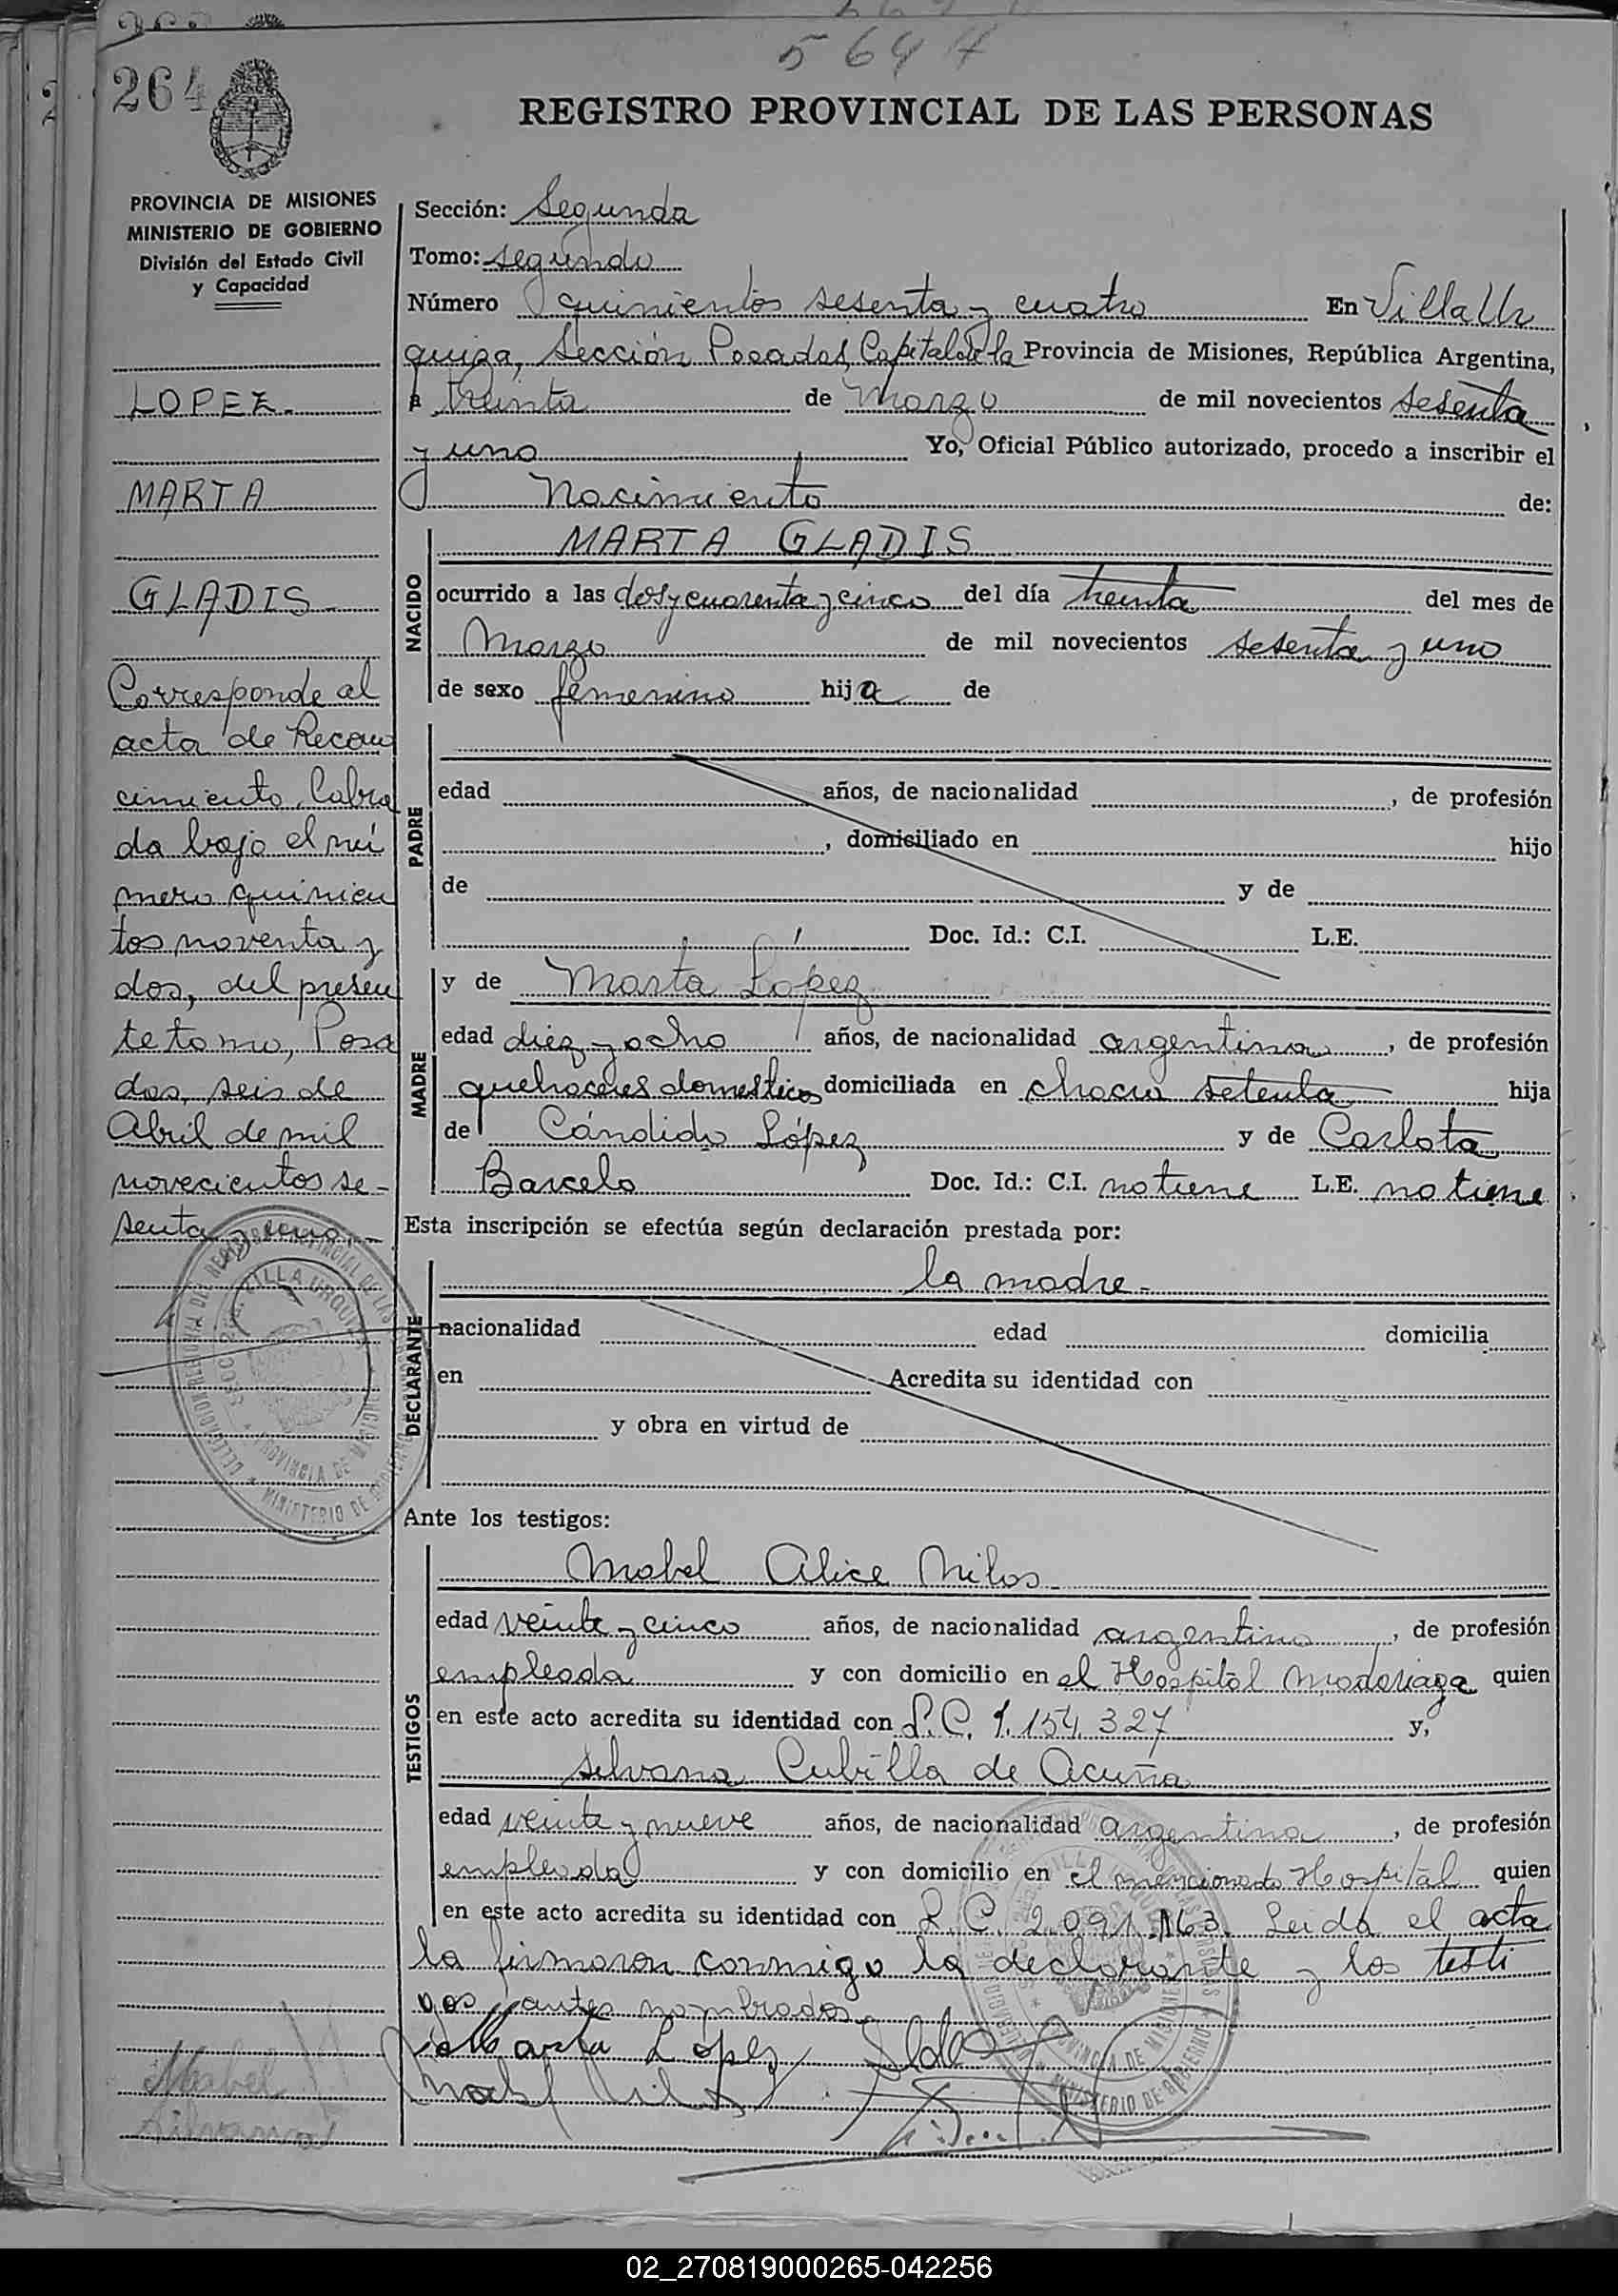 5644
264
REGISTRO PROVINCIAL DE LAS PERSONAS
PROVINCIA DE MISIONES
MINISTERIO DE GOBIERNO
División del Estado Civil
y Capacidad
LOPEZ.
MARTA
GLADIS
Corresponde al
acta de Recono
cimiento, labra
da bajo el nú
mero quinien
tos noventa y
dos, del presen
te tomo, Posa
das, seis de
Abril de mil
novecientos se-
senta y uno.-
Sección: Segunda
Tomo: segundo
Número quinientos sesenta y cuatro En Villa Ur
quiza, Sección Posadas, Capital de la Provincia de Misiones, República Argentina,
a treinta de Marzo de mil novecientos sesenta
y uno Yo, Oficial Público autorizado, procedo a inscribir el
Nacimiento de:
NACIDO
MARTA GLADIS
ocurrido a las dos y cuarenta y cinco del día treinta del mes de
Marzo de mil novecientos sesenta y uno
de sexo femenino hija de
PADRE
edad años, de nacionalidad , de profesión
, domiciliado en hijo
de y de
Doc. Id.: C.I. L.E.
MADRE
y de Marta López
edad diez y ocho años, de nacionalidad argentina, de profesión
quehaceres domesticos domiciliada en chacra setenta hija
de Cándido López y de Carlota
Barcelo Doc. Id.: C.I. no tiene L.E. no tiene
Esta inscripción se efectúa según declaración prestada por:
DECLARANTE
la madre-
nacionalidad edad domicilia
en Acredita su identidad con
y obra en virtud de
Ante los testigos:
TESTIGOS
Mabel Alice Milos
edad veinte y cinco años, de nacionalidad argentina, de profesión
empleada y con domicilio en el Hospital Madariaga quien
en este acto acredita su identidad con L.C. 1.154.327 y,
silvana Cubilla de Acuña
edad veinte y nueve años, de nacionalidad argentina, de profesión
empleada y con domicilio en el mencionado Hospital quien
en este acto acredita su identidad con L.C. 2.091.163. Leida el acta
la firmaron conmigo la declarante y los testi
gos antes nombrados.
Marta López
Mabel Milos
Mabel
Silvana
VILLA URQUIZA
PROVINCIA DE MISIONES
MINISTERIO DE GOBIERNO
02_270819000265-042256